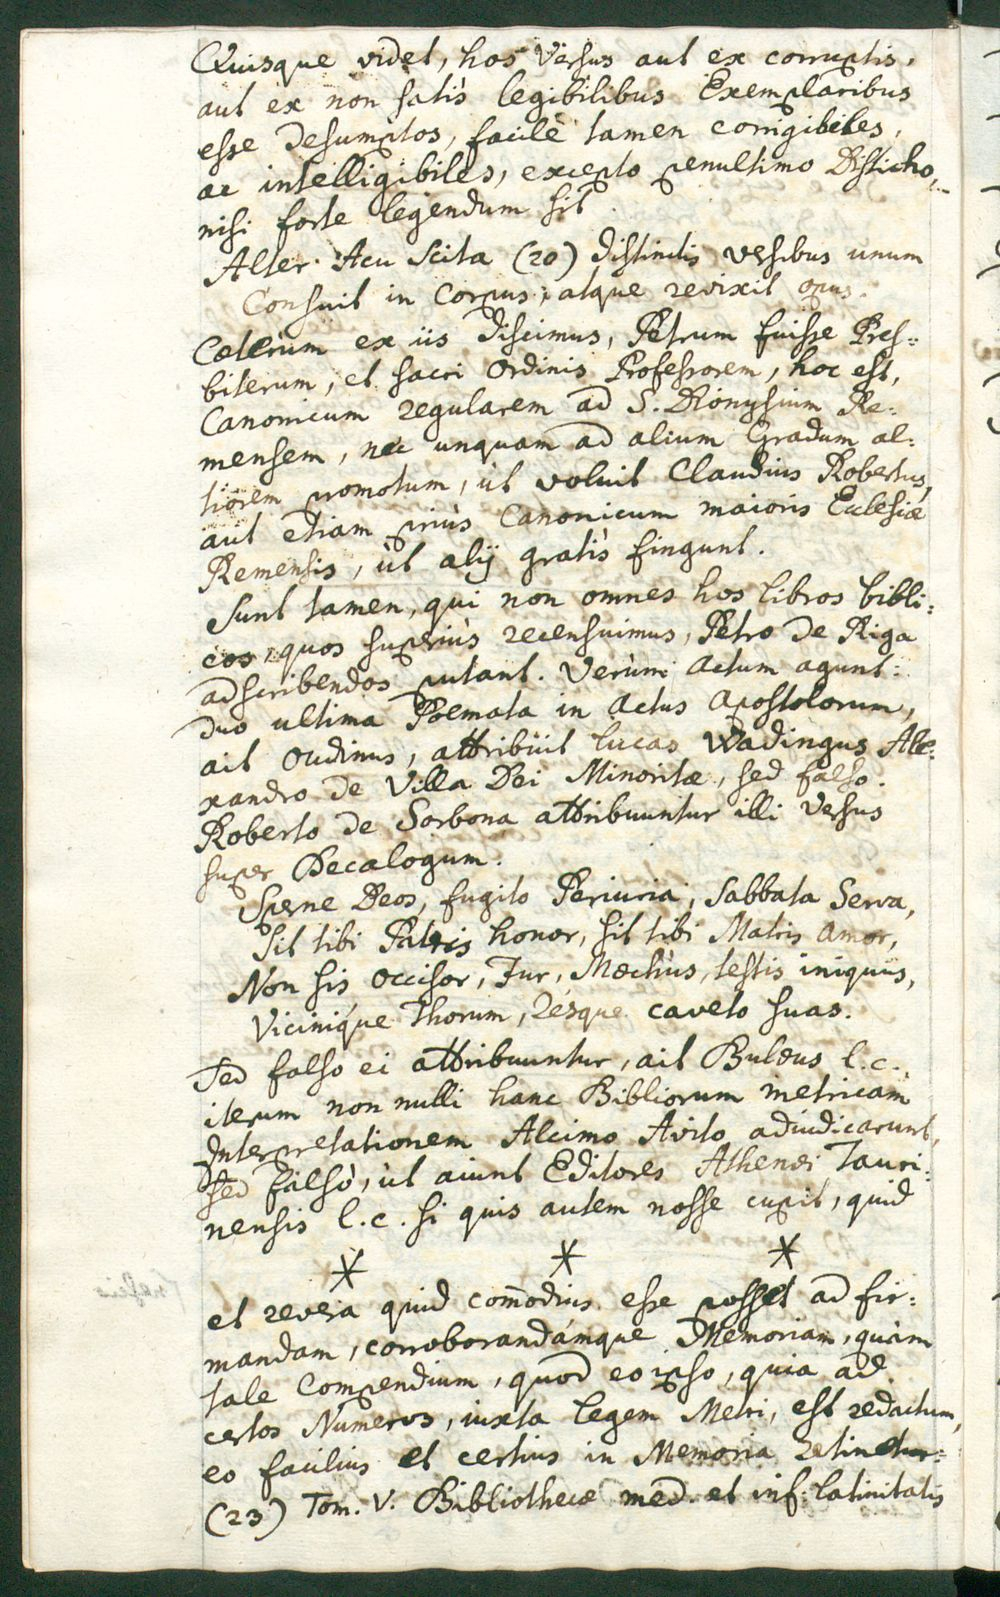 Quisque videt, hos Versus aut ex corruptis,
aut ex non satis legibilibus Exemplaribus
esse desumptos, facilè tamen corrigibiles,
ac intelligibiles, excepto penultimo Disticho,
nisi forte legendum sit
Alter Acu Scita (20) distinctis versibus unum
Consuit in Corpus; atque revixit opus.
Coeterum ex iis discimus, Petrum fuisse Pres=
biterum, et sacri Ordinis Professorem, hoc est,
Canonicum regularem ad S. Dionysium Re=
mensem, nec unquam ad alium Gradum al=
tiorem promotum, ùt voluit Claudius Robertus,
aut etiam priùs Canonicum maioris Ecclesiæ
Remensis, ùt alij gratis fingunt.
Sunt tamen, qui non omnes hos libros bibli=
cos, quos superiùs recensuimus, Petro de Riga
adscribendos putant. Verùm actum agunt:
duo ultima Poemata in Actus Apostolorum,
ait Oudinus, attribuit Lucas Wadingus Ale=
xandro de Villa Dei Minoritæ, sed falso.
Roberto de Sorbona attribuuntur illi Versus
super Decalogum.
Sperne Deos, fugito Periuria, Sabbata Serva,
Sit tibi Patris honor, sit tibi Matris Amor,
Non sis occisor, Fur, Mœchus, testis iniquus,
Vicinique Thorum, résque caveto suas.
Sed falso ei attribuuntur, ait Buleus l.c.,
iterum non nulli hanc Bibliorum metricam
Interpretationem Alcimo Avito adiudicarunt,
sed falsò, ùt aiunt Editores Athenæi Tauri=
nensis l.c. si quis autem nosse cupit, quid
* * *
et revera quid com̄odius esse posset ad fir=
mandam, corroborandámque Memoriam, quàm
tale Compendium, quod eo ipso, quia ad
certos Numeros, iuxta legem Metri, est redactum,
eo facilius et certius in Memoria retinetur=
(23) Tom. V. Bibliothecæ med. et inf: latinitatis